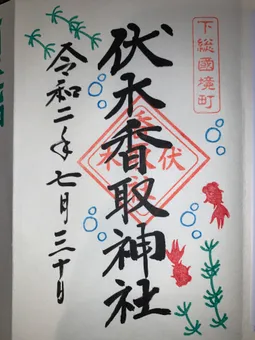 下総國境町
伏木香取神社
令和二年七月三十日